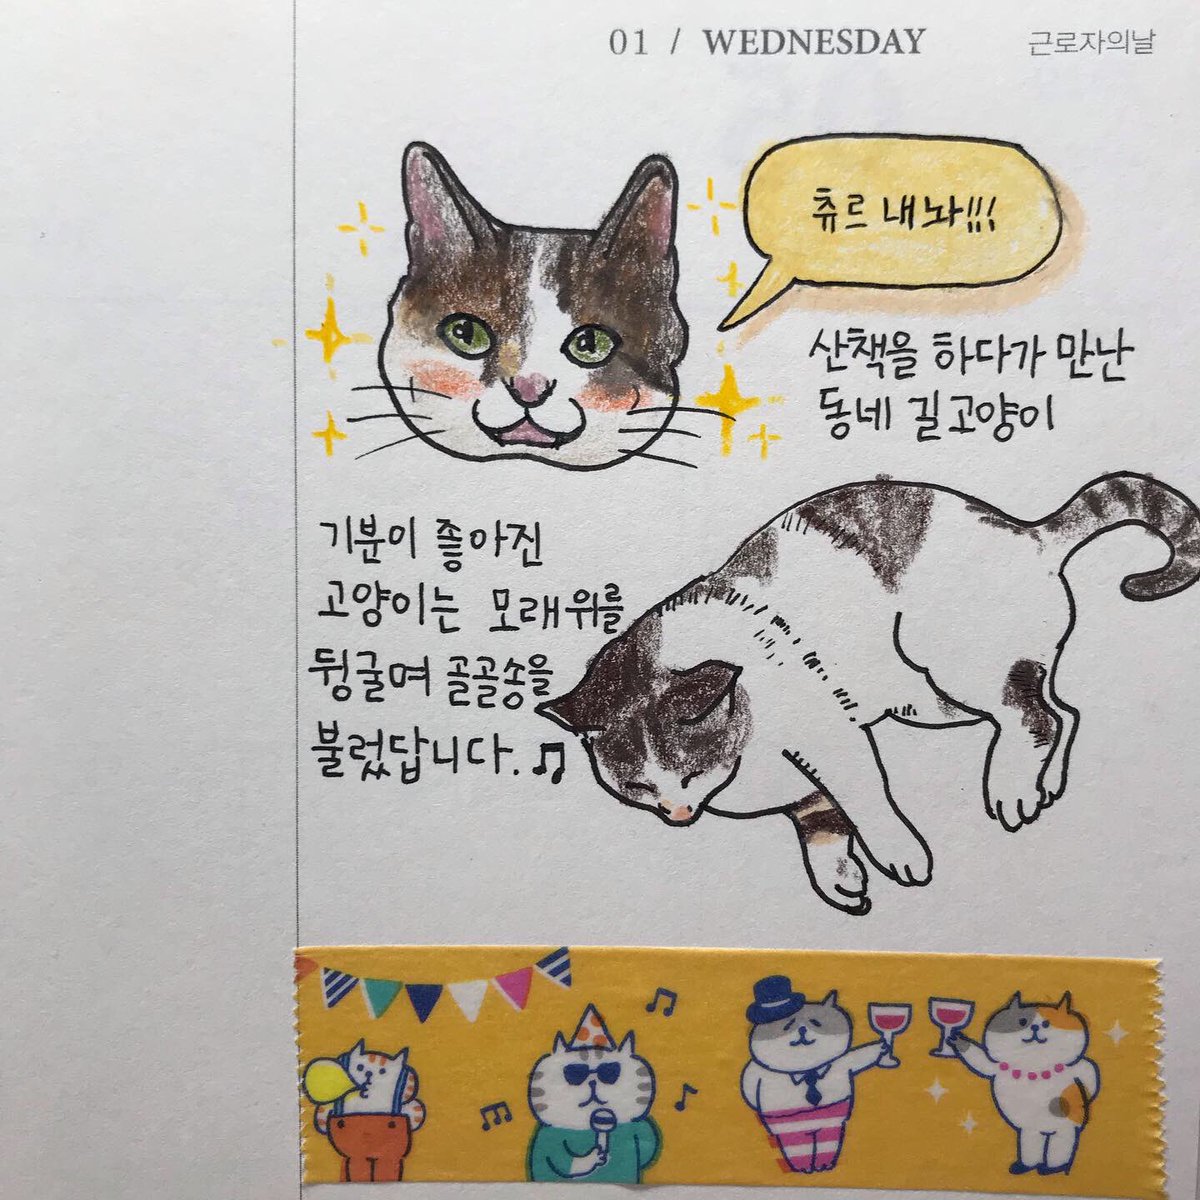 01 / WEDNESDAY 근로자의날
츄르 내놔!!!
산책을 하다가 만난
동네 길고양이
기분이 좋아진
고양이는 모래위를
뒹굴며 골골송을
불렀답니다.♫